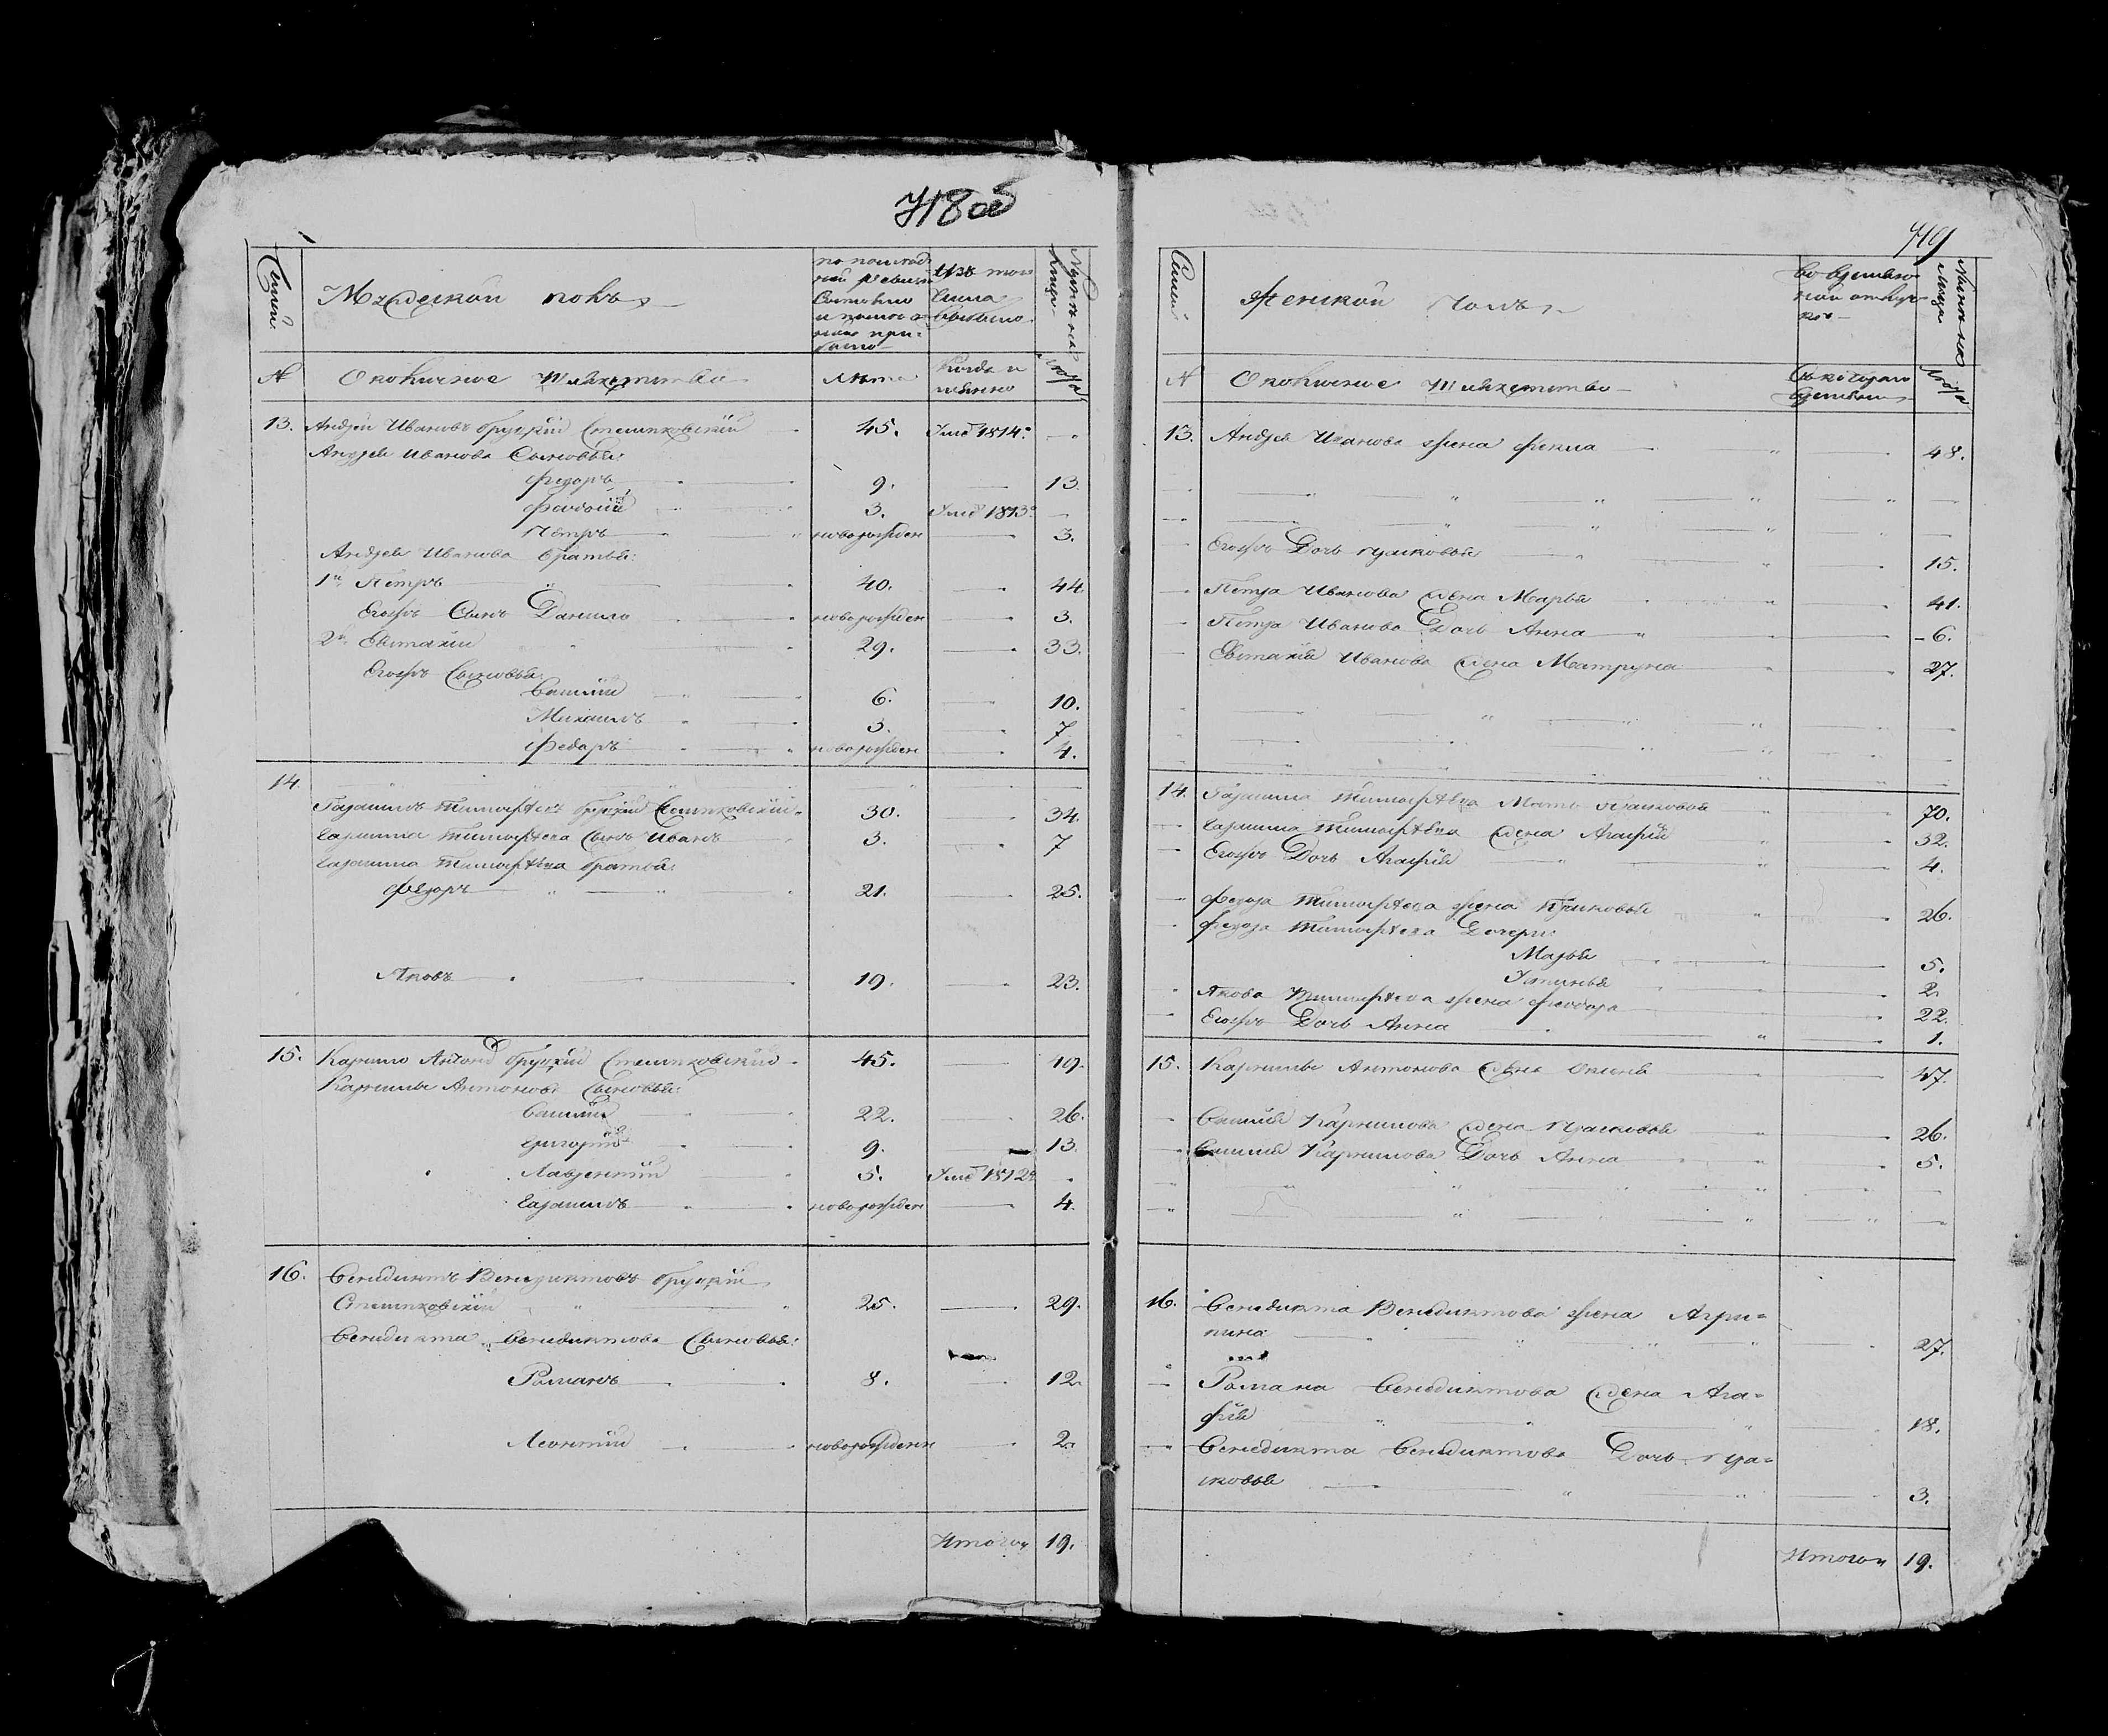 718 об
Семей
Мужеской полъ
по послед-
ней ревизии
состояло
и после о-
ной при-
было
Изъ того
числа
выбыло
Ныне на
лицо
№
Околичное шляхетство
лета
Когда и
именно
лета
13. Андрей Ивановъ Бруцкій Стемпковскій 45. Умѣ 1814.
Андрея Иванова Сыновья:
Федоръ 9. 13.
3. Умѣ 1813.
Петръ новорожден 3.
Андрея Иванова братья:
1й Петръ 40. 44
Егожъ Сынъ Данило новорожден 3.
2й Евстахій 29. 33.
Егожъ Сыновья
Василій 6. 10.
Михаилъ 3. 7
Федоръ новорожден 4.
14.
Гарасимъ Тимофѣевъ Бруцкій Стемпковскій 30. 34.
Гарасима Тимофѣева Сынъ Иванъ 3. 7
Гарасима Тимофѣева братья:
Федоръ 21. 25.
Яковъ 19. 23.
15. Карнило Антоновъ Бруцкій Стемпковскій 45. 49.
Карнилы Антонова Сыновья:
Василій 22. 26.
Григорій 9. 13.
Лаврентій 5. Умѣ 1812
Гарасимъ новорожден 4.
16. Венедиктъ Венедиктовъ Бруцкій
Стемпковскій 25. 29.
Венедикта Венедиктова Сыновья:
Романъ 8. 12.
Леонтій новорожден 2.
Итого 19.
719
Семей
Женской полъ
во времен-
ной отлуч-
ке
Ныне на
лицо
№
Околичное шляхетство
Съ котораго
времени
лета
13. Андрея Иванова жена Фекла 48.
Егожъ Дочь Прасковья 15.
Петра Иванова жена Марья 41.
Петра Иванова Дочь Анна 6.
Евстахія Иванова жена Матруна 27.
14. Гарасима Тимофѣева Мать Прасковья 70.
Гарасима Тимофѣева жена Агафія 32.
Егожъ Дочь Агафія 4.
Федора Тимофѣева жена Прасковья 26.
Федора Тимофѣева Дочери:
Марья 5.
Устинья 2.
Якова Тимофѣева жена Феодора 22.
Егожъ Дочь Анна 1.
15. Карнилы Антонова жена Елена 47.
Василія Карнилова жена Прасковья 26.
Василія Карнилова Дочь Анна 5.
16. Венедикта Венедиктова жена Агри-
пина 27.
Романа Венедиктова жена Ага-
фія 18.
Венедикта Венедиктова Дочь Пра-
сковья 3.
Итого 19.